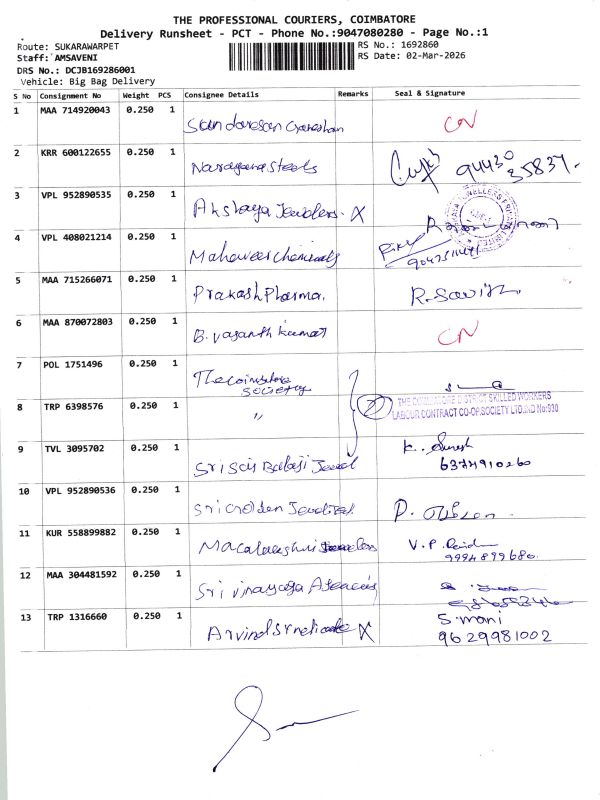 THE PROFESSIONAL COURIERS, COIMBATORE
Delivery Runsheet - PCT - Phone No.:9047080280 - Page No.:1
Route: SUKARAWARPET
RS No.: 1692860
Staff: AMSAVENI
RS Date: 02-Mar-2026
DRS No.: DCJB169286001
Vehicle: Big Bag Delivery
S No Consignment No Weight PCS Consignee Details Remarks Seal & Signature
1 MAA 714920043 0.250 1 CN
2 KRR 600122655 0.250 1 Narayana Steels 94430 35837
3 VPL 952890535 0.250 1 Akshaya Jewelers X
4 VPL 408021214 0.250 1 Mahaveer Chemicals
5 MAA 715266071 0.250 1 Prakash Pharma. R.
6 MAA 870072803 0.250 1 B. Vasanth kumar CN
7 POL 1751496 0.250 1 The Coimbatore
Society
8 TRP 6398576 0.250 1 〃 2
THE COIMBATORE DISTRICT SKILLED WORKERS
LABOUR CONTRACT CO-OP.SOCIETY LTD,IND No:930
9 TVL 3095702 0.250 1 Sri Sai Balaji Jewel K. Suresh
6374910260
10 VPL 952890536 0.250 1 Sri Golden P.
11 KUR 558899882 0.250 1 Mahalakshmi Jewelers V.P.
9994899680.
12 MAA 304481592 0.250 1 Sri Vinayaga Agencies
13 TRP 1316660 0.250 1 Arvind Syndicate X S. mani
9629981002